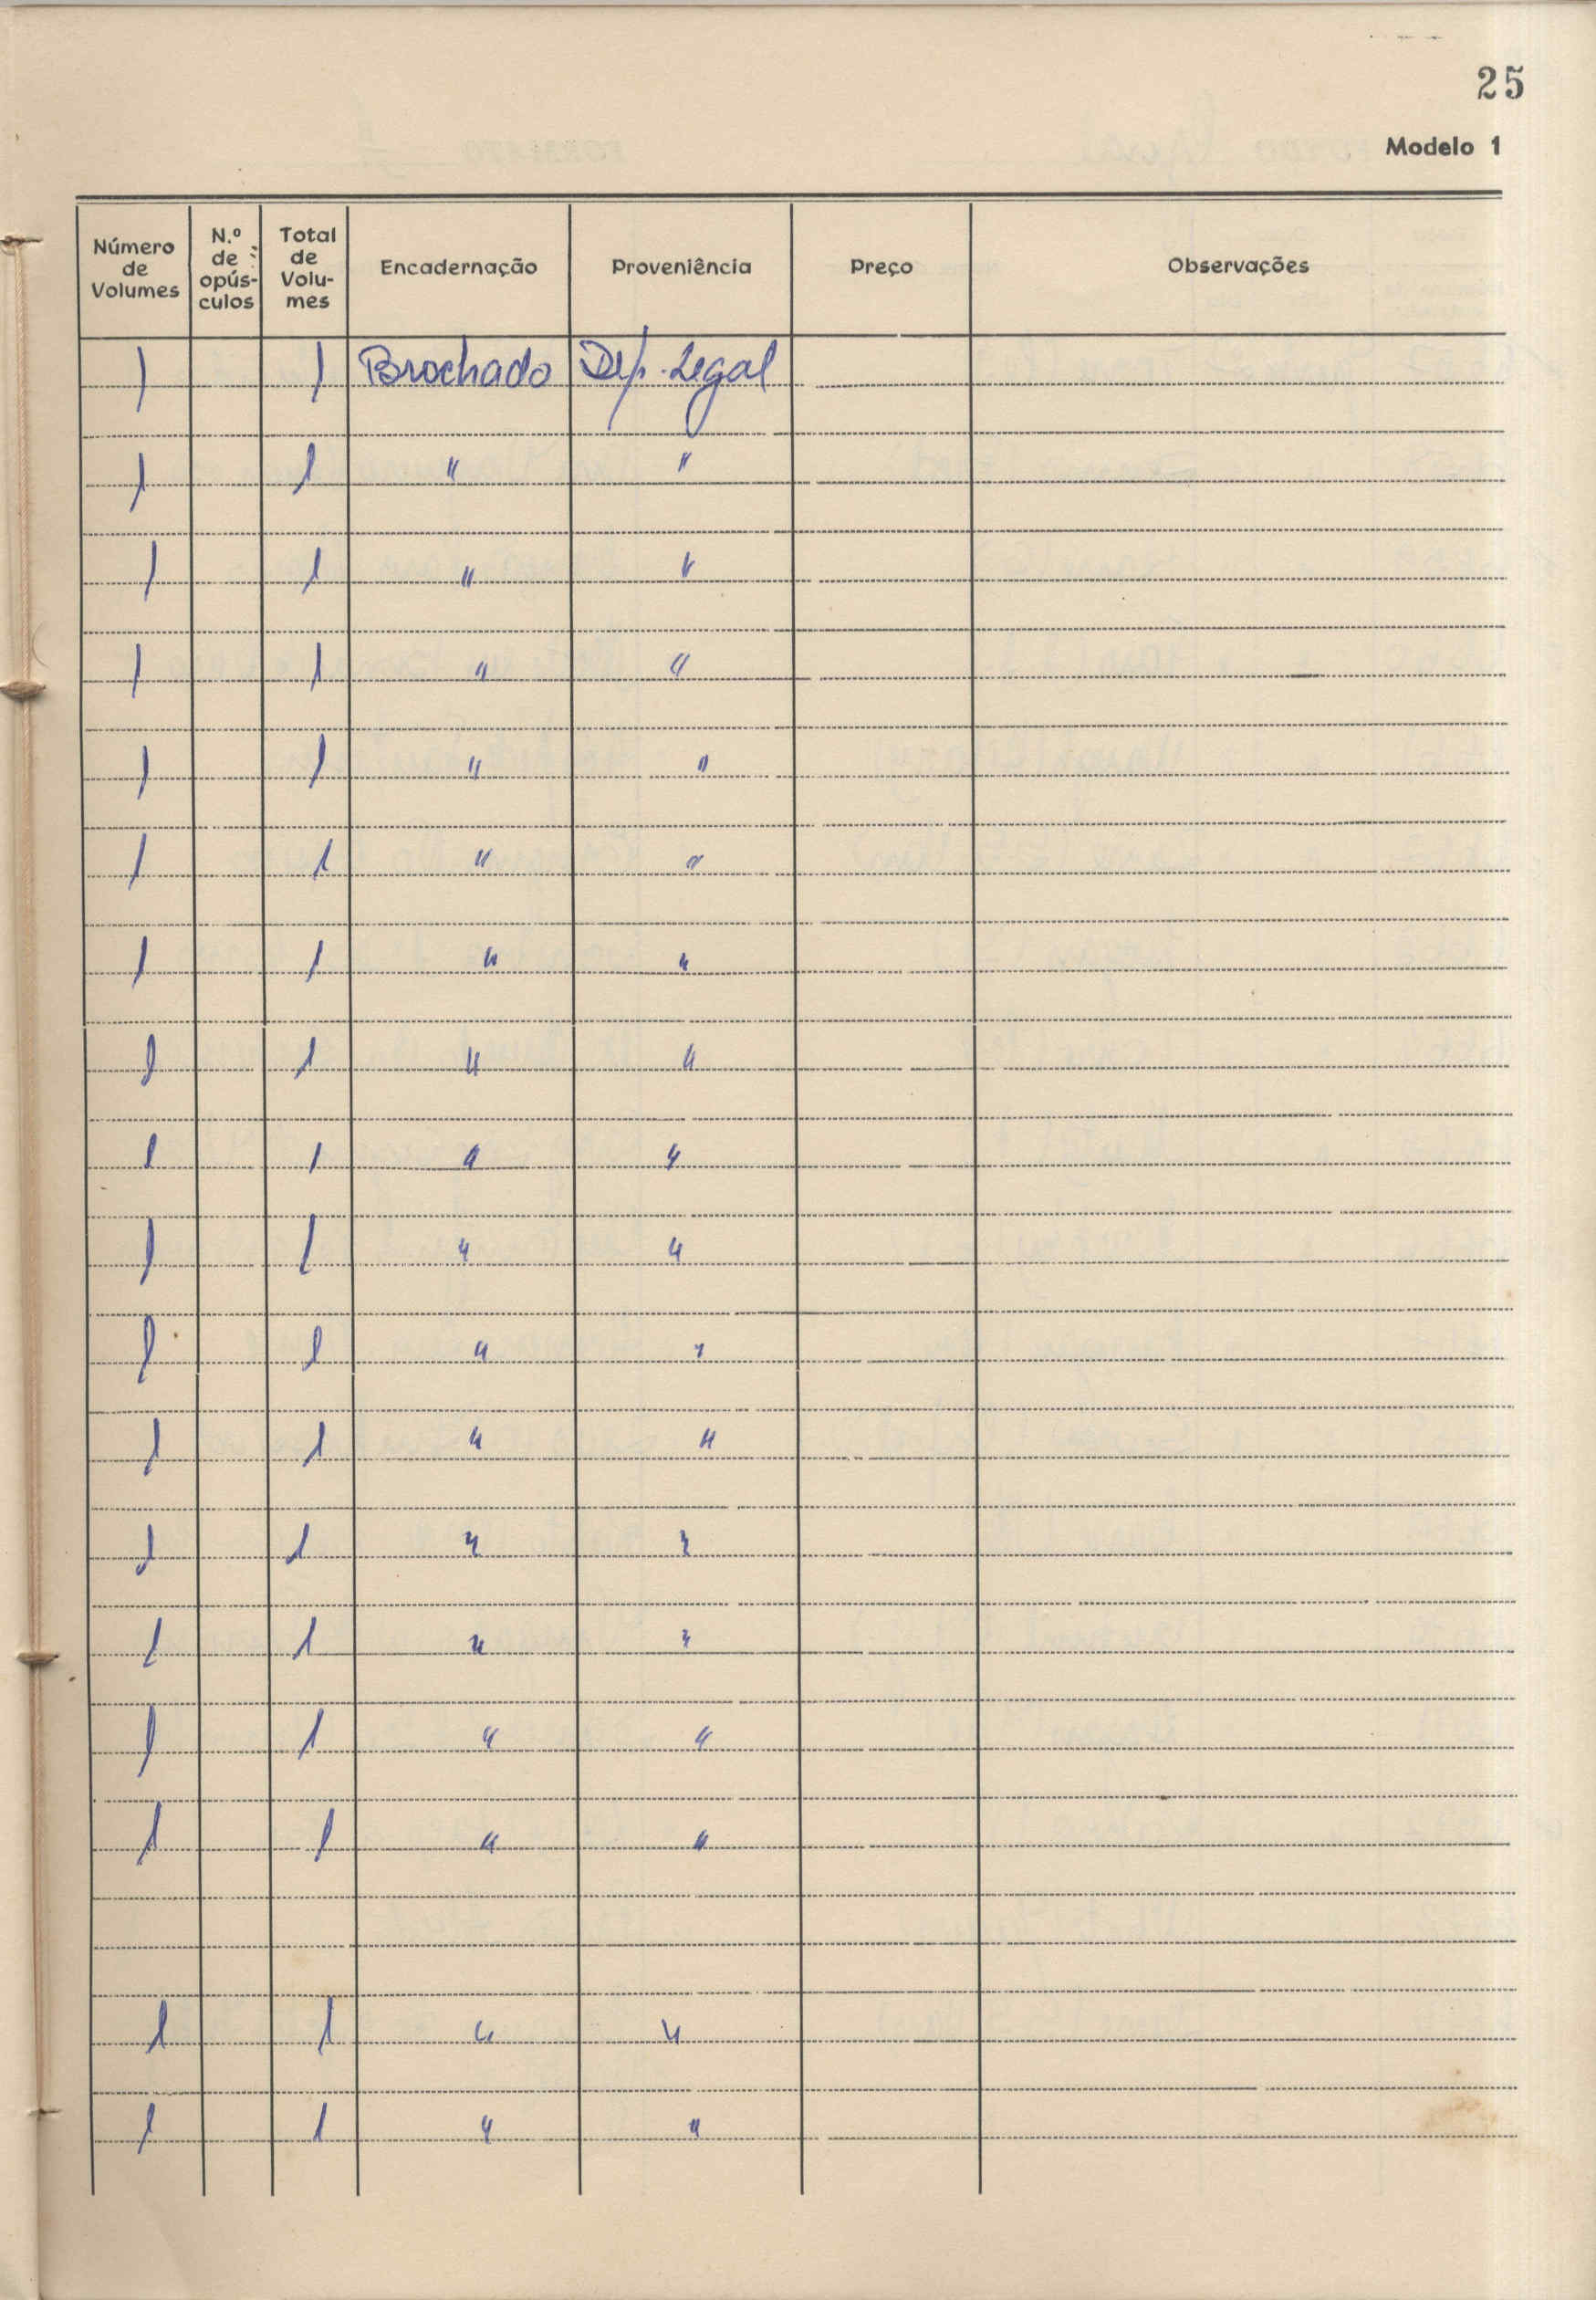 25
Modelo 1
Número de Volumes | N.º de opús-culos | Total de Volu-mes | Encadernação | Proveniência | Preço | Observações
1 | | 1 | Brochado | Dep. Legal
1 | | 1 | " | "
1 | | 1 | " | "
1 | | 1 | " | "
1 | | 1 | " | "
1 | | 1 | " | "
1 | | 1 | " | "
1 | | 1 | " | "
1 | | 1 | " | "
1 | | 1 | " | "
1 | | 1 | " | "
1 | | 1 | " | "
1 | | 1 | " | "
1 | | 1 | " | "
1 | | 1 | " | "
1 | | 1 | " | "
1 | | 1 | " | "
1 | | 1 | " | "